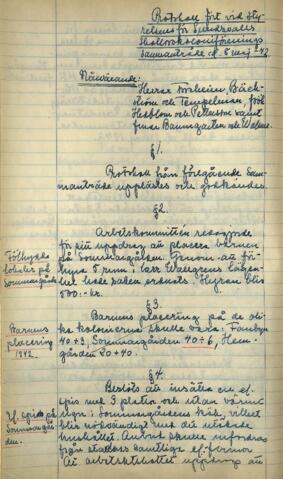 Protokoll fört vid Sty-
relsens för Sundsvalls
Skollovskoloniförenings
sammanträde d. 8 maj 42.
Närvarande:
Herrar Bäck-
ström och Tempelman, Frök.
Hedblom och Pettersson samt
fruar Baumgarten och
§1.
Protokoll från föregående sam-
manträde upplästes och godkändes.
§2.
Arbetskommittén redogjorde
för sitt uppdrag att placera barnen
på Sommargården. Genom att för-
hyra 5 rum i Wallgrens lägen-
het hade saken ordnats. Hyran blir
500:- kr.
Förhyrda
lokaler på
Sommargården
§3.
Barnens placering på de oli-
ka kolonierna skulle vara: Fanbyn
40+3, Sommargården 40+6, Hem-
gården 20+40.
Barnens
placering
1942.
§4.
Beslöts att insätta en el.
spis med 3 plattor och utan värme-
i Sommargårdens kök, vilket
blir nödvändigt med det utökade
hushållet. Anbud skulle infordras
från stadens samtliga el-firmor
At arbetsutskottet uppdrogs att
El. spis på
Sommargår-
den.